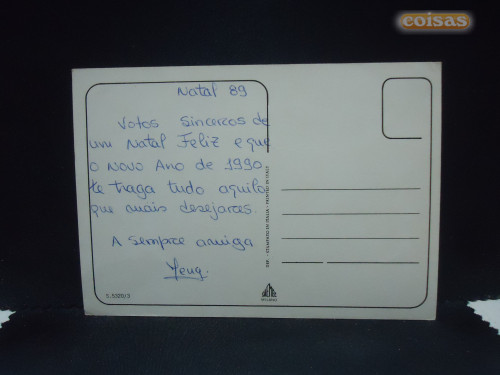 coisas
Natal 89
Votos sinceros de
um Natal Feliz e que
o novo Ano de 1990
te traga tudo aquilo
que mais desejares.
A sempre amiga